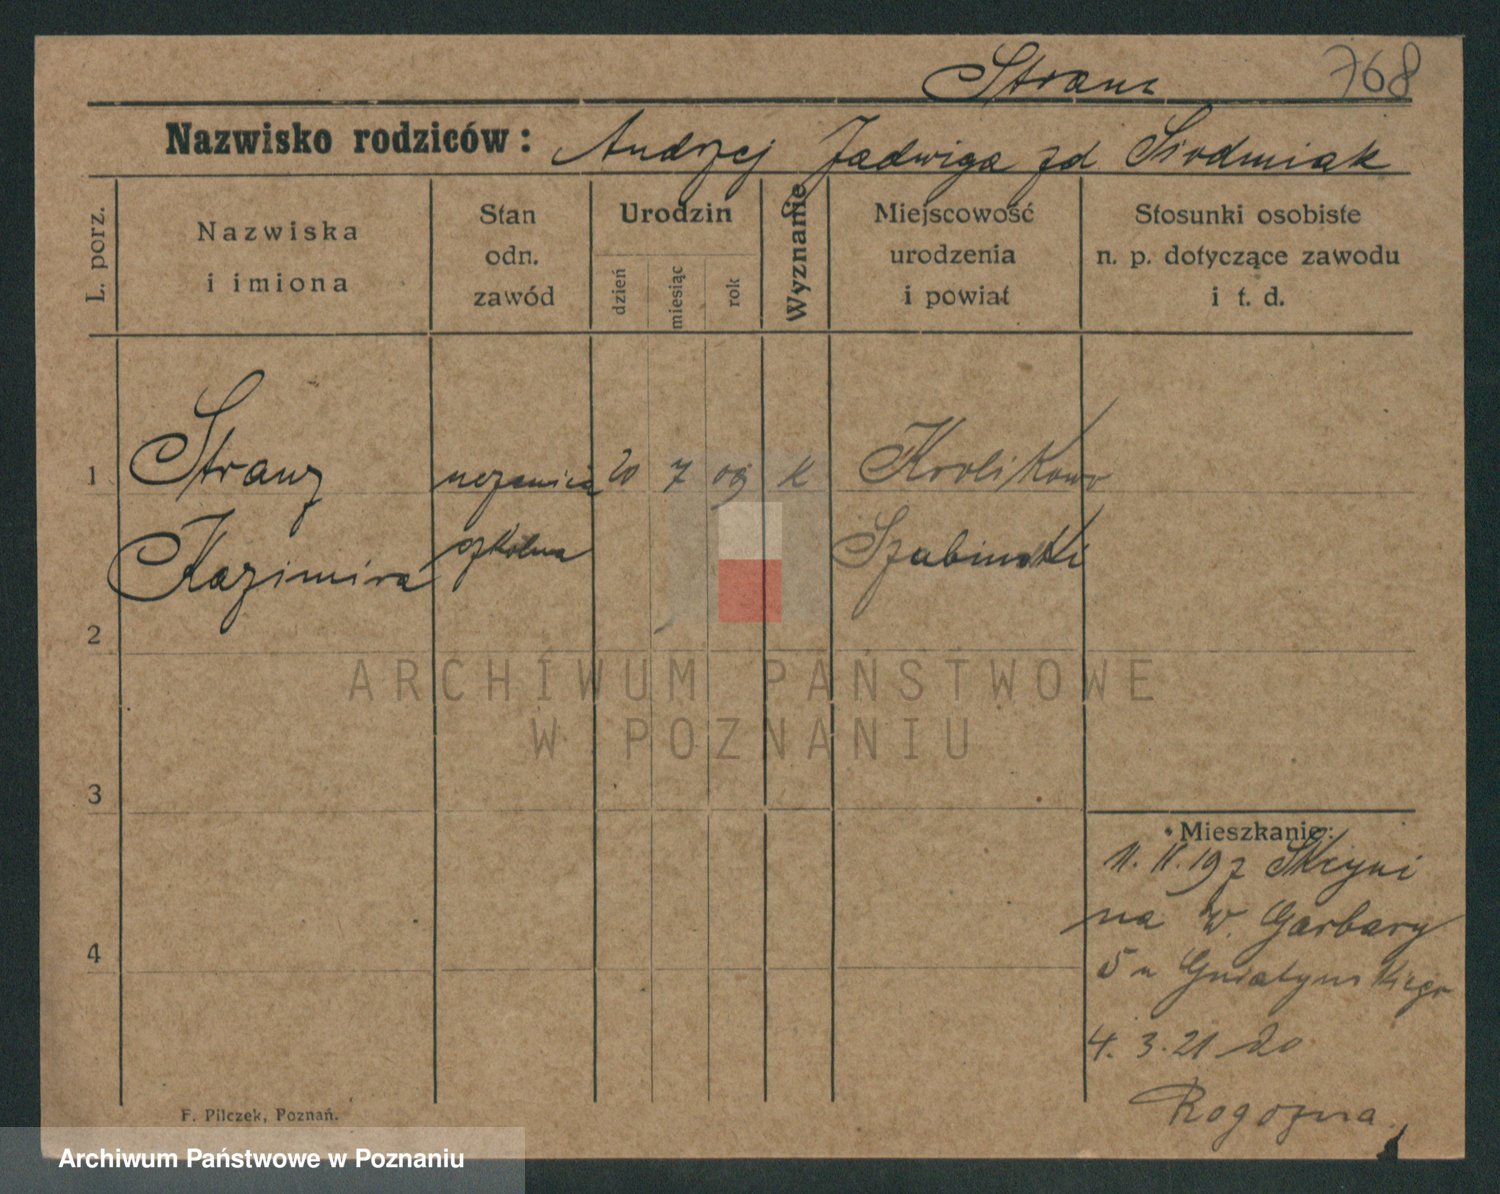 Stranz
768
Nazwisko rodziców: Andrzej Jadwiga zd. Siodmiak
L. porz.
Nazwiska
i imiona
Stan
odn.
zawód
Urodzin
dzień
miesiąc
rok
Wyznanie
Miejscowość
urodzenia
i powiat
Stosunki osobiste
n. p. dotyczące zawodu
i t. d.
1
Stranz uczenica 20 7 09 k Krolikowo
Kazimira szkolna Szubinski
2
3
4
Mieszkanie:
11. 11. 19 z Skcyni
na W. Garbary
5 u
4. 3. 21 do
Rogozna
F. Pilczek, Poznań.
ARCHIWUM PAŃSTWOWE
W POZNANIU
Archiwum Państwowe w Poznaniu